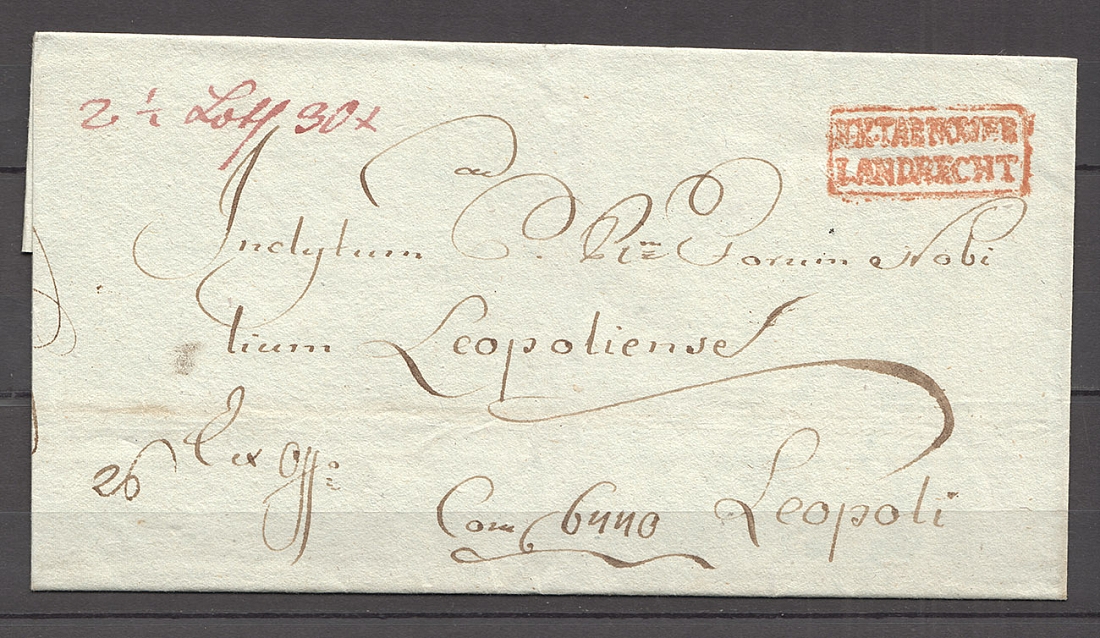 2 ½ Loth 30 x
K.K. TARNOWER
LANDRECHT
ad
Inclytum C. R. Forum Nobi
lium Leopoliense
Ex Offo
26
Com 6440 Leopoli